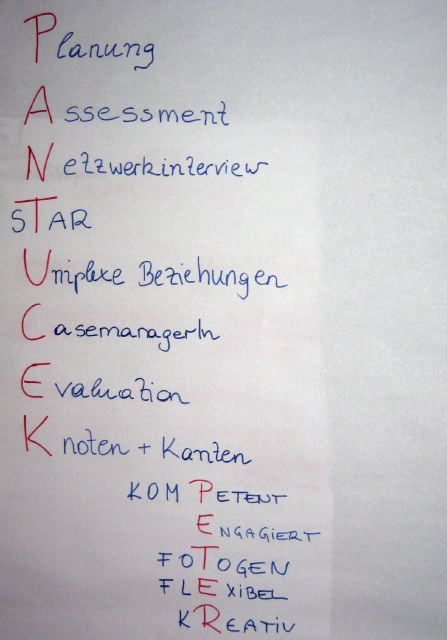 Planung
Assessment
Netzwerkinterview
STAR
Uniplexe Beziehungen
CasemanagerIn
Evaluation
Knoten + Kanten
KOMPETENT
ENGAGIERT
FOTOGEN
FLEXIBEL
KREATIV